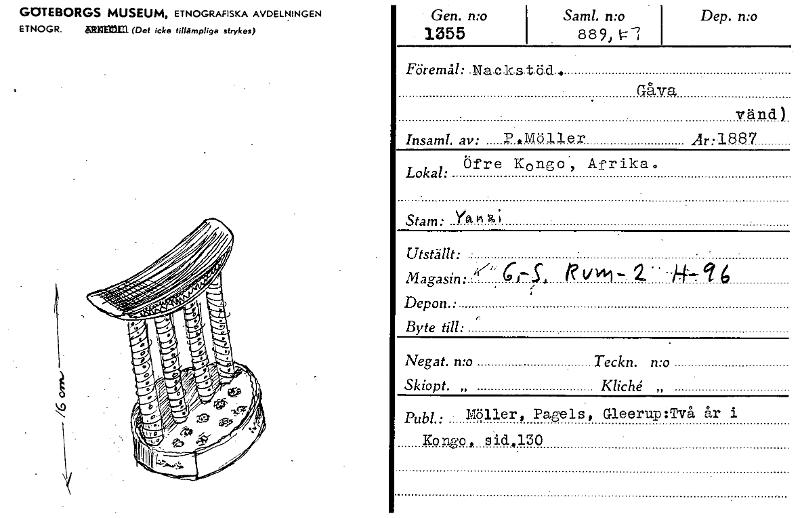 GÖTEBORGS MUSEUM, ETNOGRAFISKA AVDELNINGEN
ETNOGR. ARKEOL. (Det icke tillämpliga strykes)
16 cm
Gen. n:o Saml. n:o Dep. n:o
1355 889,
Föremål: Nackstöd.
Gåva
vänd)
Insaml. av: P.Möller År:1887
Lokal: Öfre Kongo, Afrika.
Stam: Yanzi
Utställt:
Magasin: G-S. Rum-2 H-96
Depon.:
Byte till:
Negat. n:o Teckn. n:o
Skiopt. „ Kliché „
Publ.: Möller, Pagels, Gleerup:Två år i
Kongo, sid.130